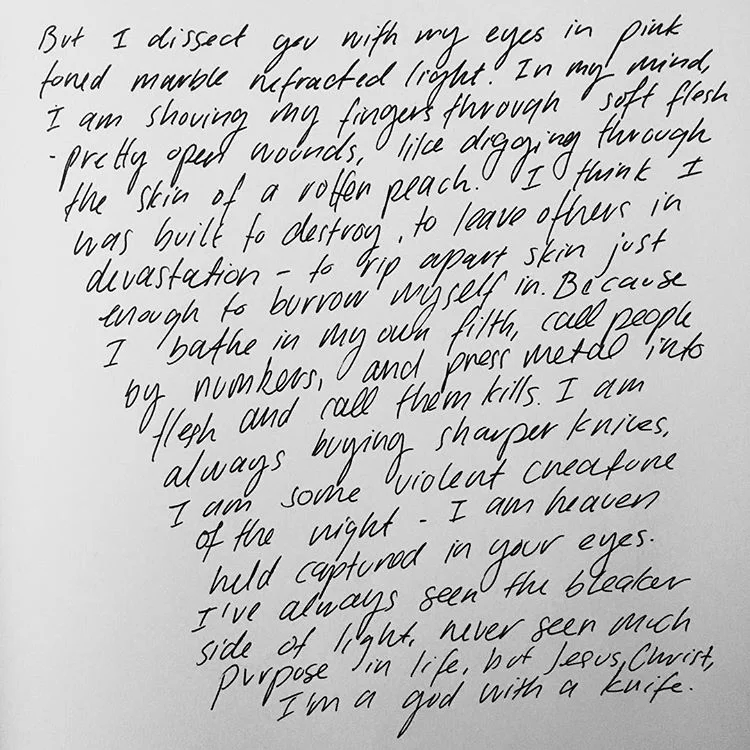 But I dissect you with my eyes in pink
toned marble refracted light. In my mind,
I am shoving my fingers through soft flesh
- pretty open wounds, like digging through
the skin of a rotten peach. I think I
was built to destroy, to leave others in
devastation - to rip apart skin just
enough to burrow myself in. Because
I bathe in my own filth, call people
by numbers, and press metal into
flesh and call them kills. I am
always buying sharper knives,
I am some violent creature
of the night - I am heaven
held captured in your eyes.
I've always seen the bleaker
side of light, never seen much
purpose in life, but Jesus, Christ,
I'm a god with a knife.